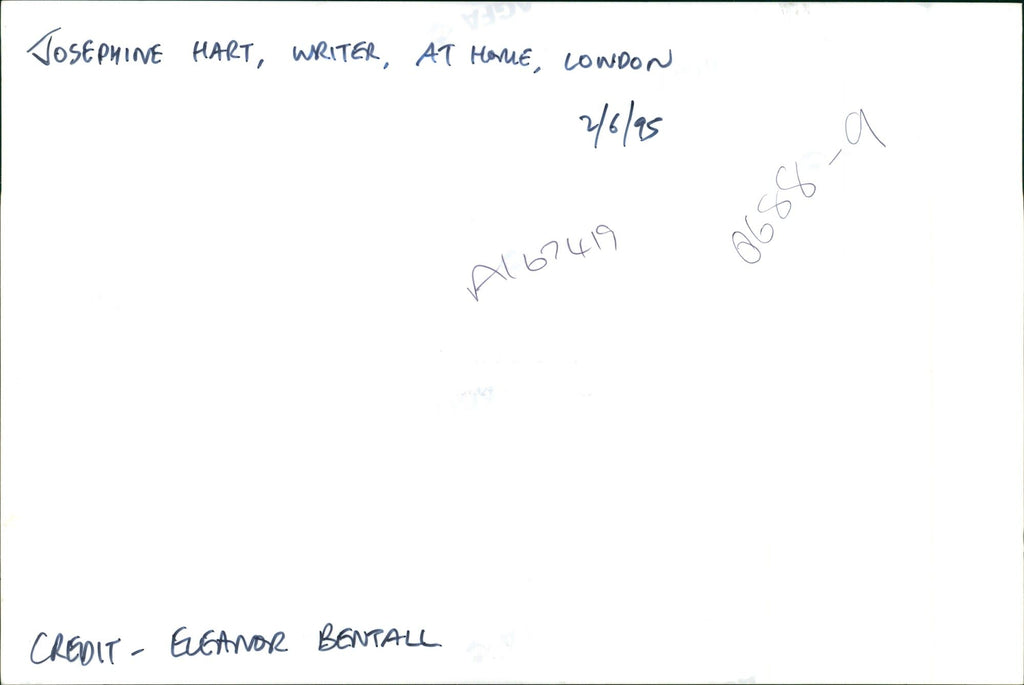 AGFA
JOSEPHINE HART, WRITER, AT HOME, LONDON
2/6/95
0688-9
A167419
CREDIT - ELEANOR BENTALL